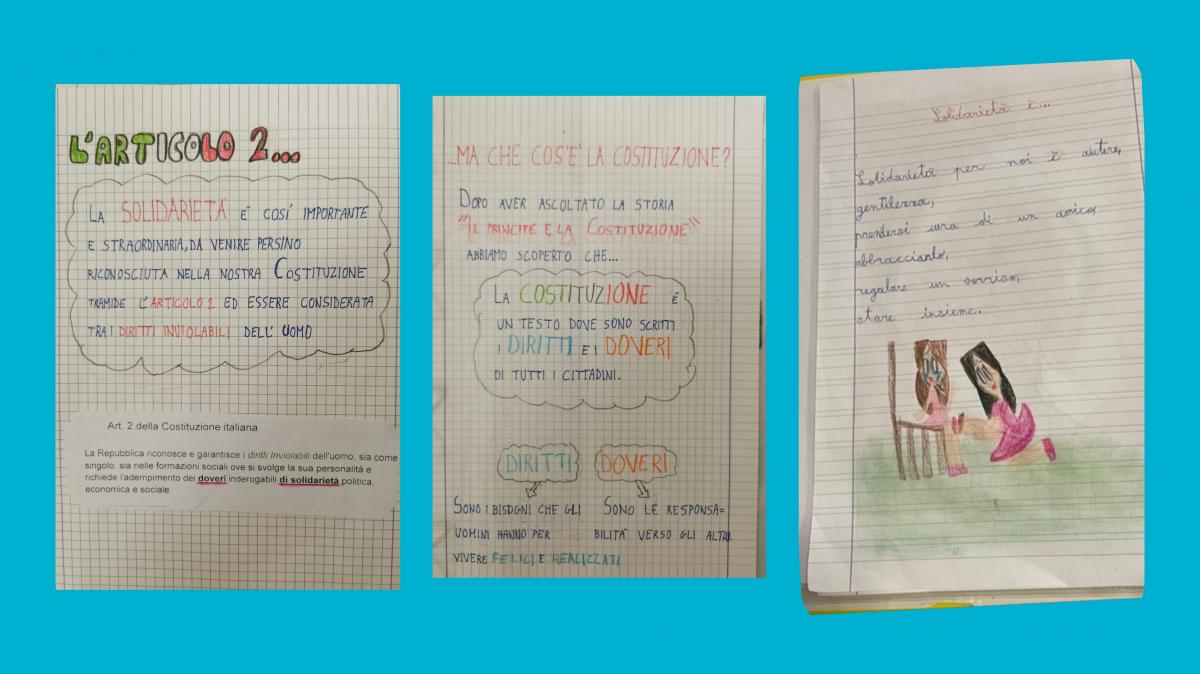 L'ARTICOLO 2...
LA SOLIDARIETÀ È COSI' IMPORTANTE
E STRAORDINARIA, DA VENIRE PERSINO
RICONOSCIUTA NELLA NOSTRA COSTITUZIONE
TRAMIDE L'ARTICOLO 2 ED ESSERE CONSIDERATA
TRA I DIRITTI INVIOLABILI DELL' UOMO
Art. 2 della Costituzione italiana
La Repubblica riconosce e garantisce i diritti Inviolabili dell'uomo, sia come
singolo, sia nelle formazioni sociali ove si svolge la sua personalità e
richiede l'adempimento dei doveri inderogabili di solidarietà politica,
economica e sociale.
...MA CHE COS'È LA COSTITUZIONE?
DOPO AVER ASCOLTATO LA STORIA
"IL PRINCIPE E LA COSTITUZIONE"
ABBIAMO SCOPERTO CHE...
LA COSTITUZIONE È
UN TESTO DOVE SONO SCRITTI
I DIRITTI E I DOVERI
DI TUTTI I CITTADINI.
DIRITTI DOVERI
SONO I BISOGNI CHE GLI
UOMINI HANNO PER
VIVERE FELICI E REALIZZATI
SONO LE RESPONSA=
BILITÀ VERSO GLI ALTRI.
Solidarietà è...
Solidarietà per noi è aiutare,
gentilezza,
prendersi cura di un amico,
abbracciarlo,
regalare un sorriso,
stare insieme.